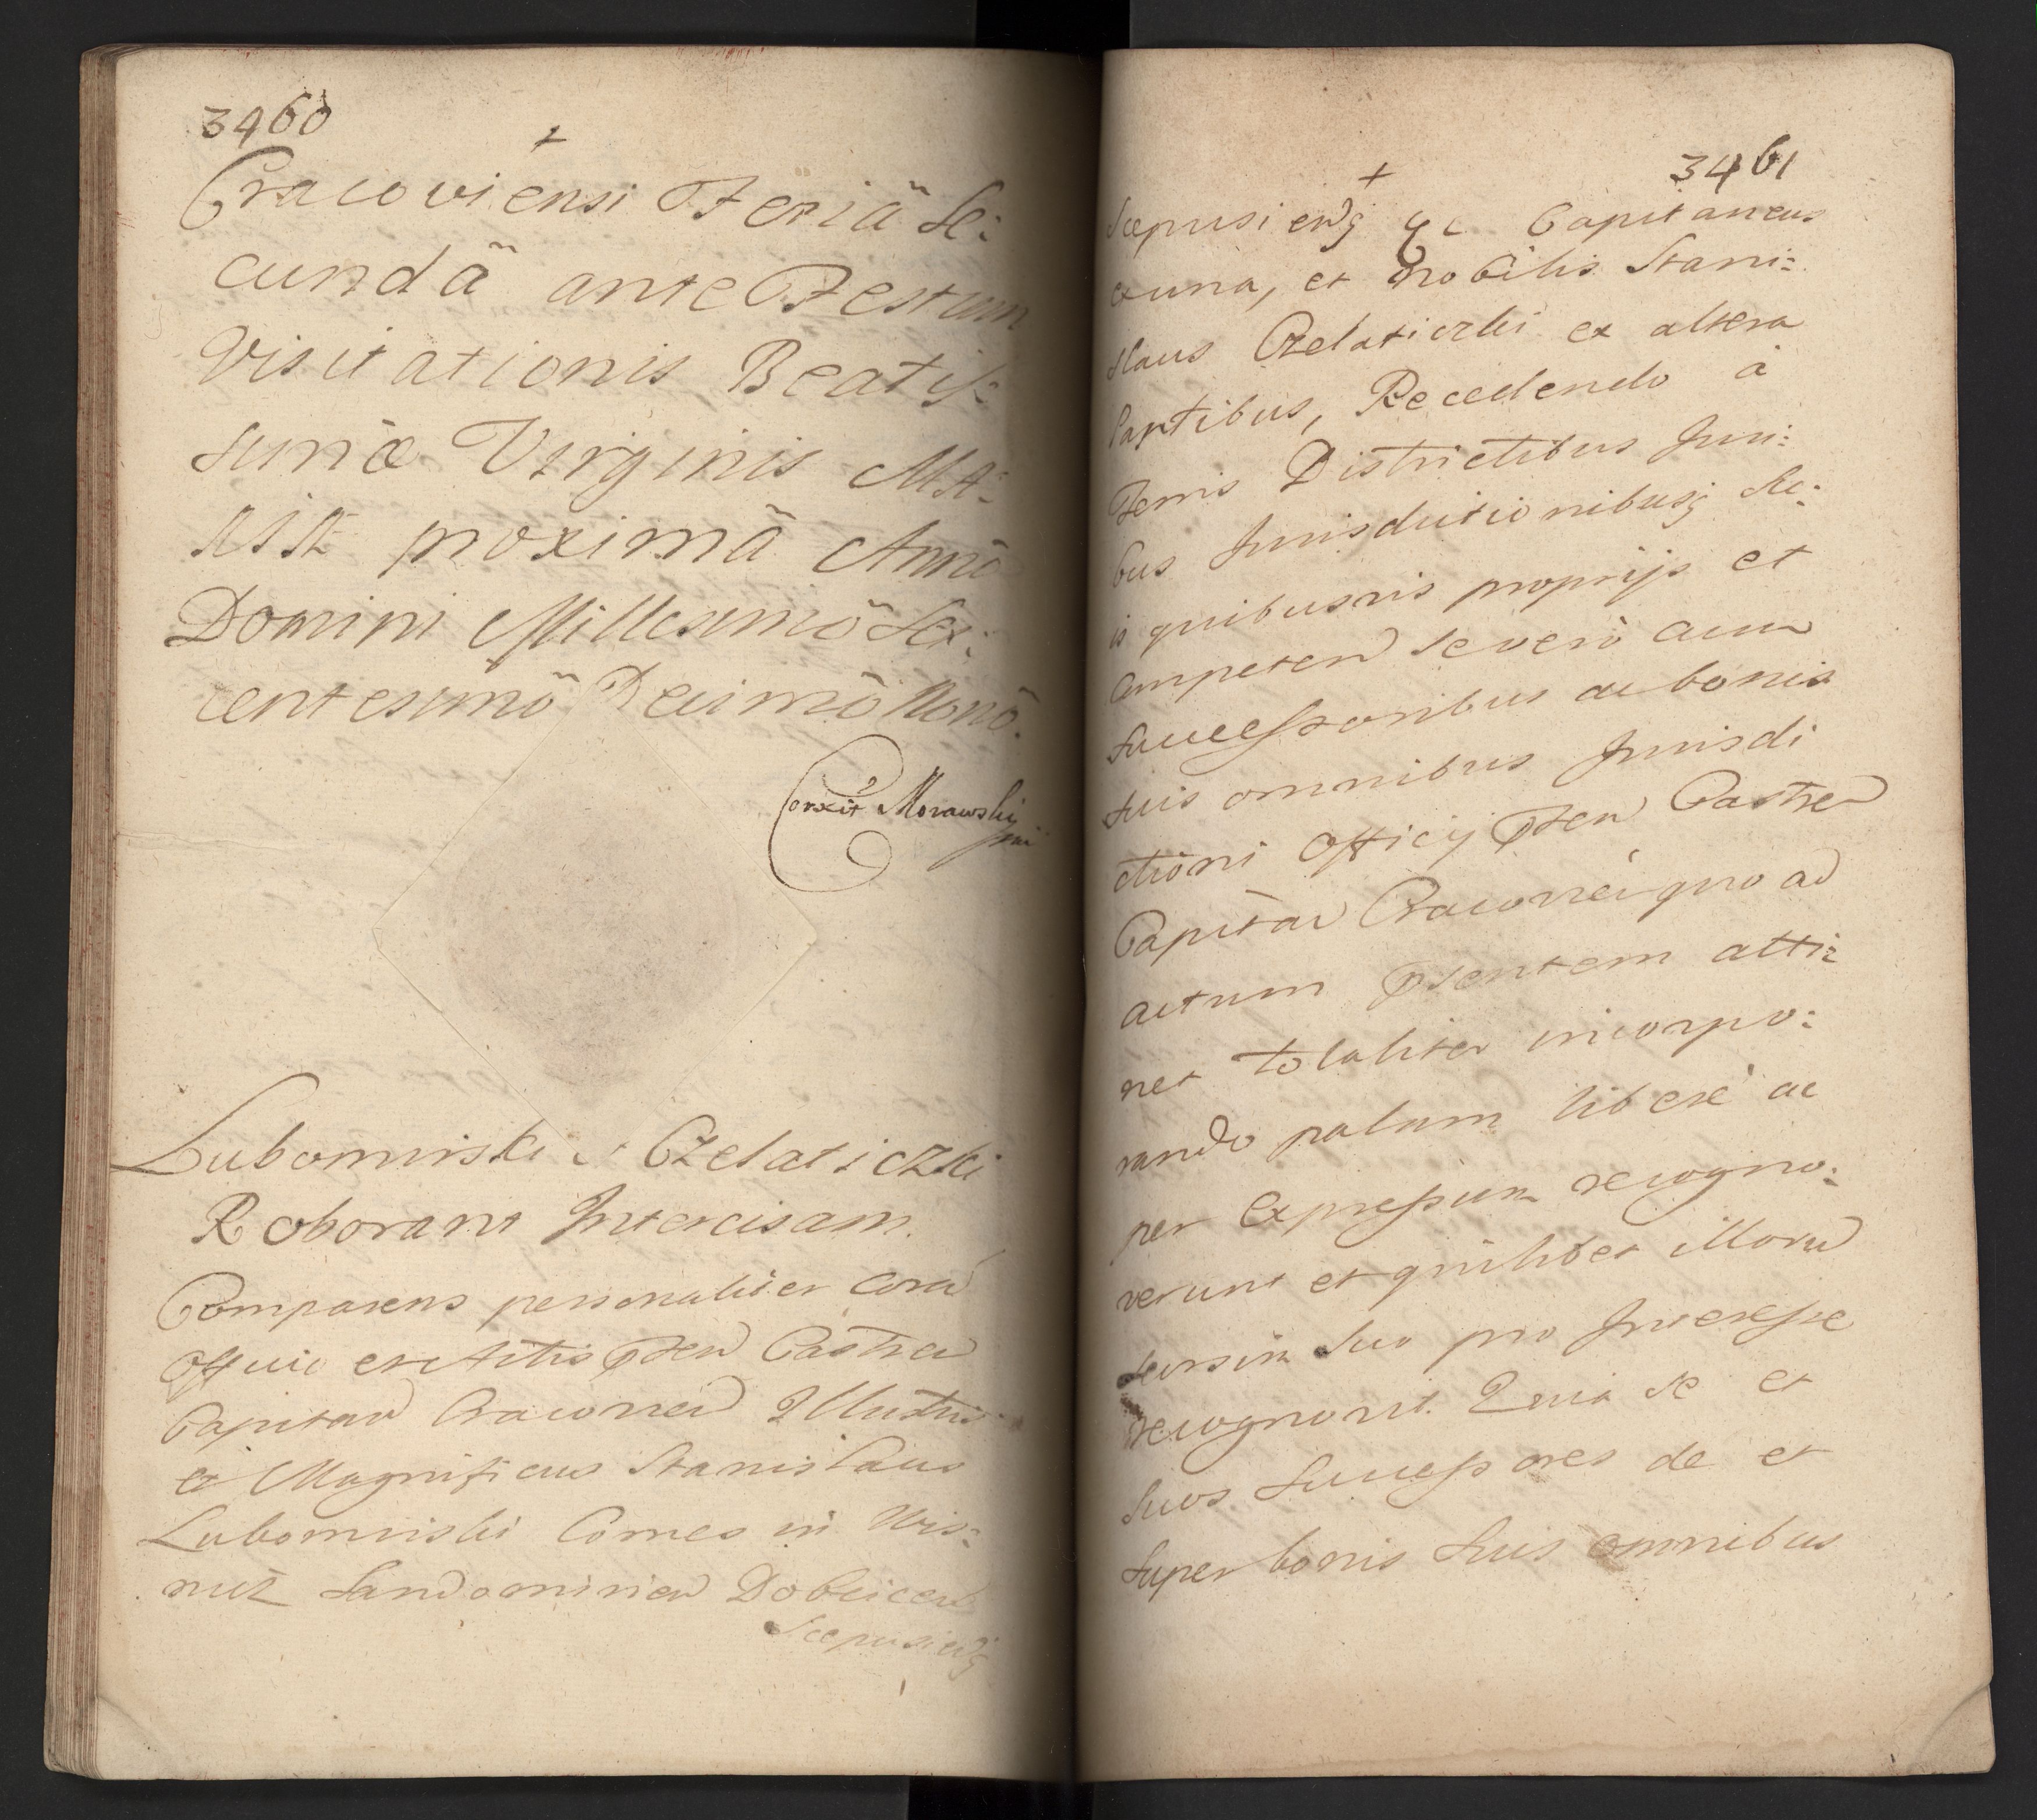 3460
+
Cracoviensi Feriã Se:
cundã ante Festum
Visitationis Beatis:
simæ Virginis MA:
RIÆ proximã Annõ
Domini Millesimõ Sex:
centesimõ Decimõ Nonõ.
Corxit Morawski
mp
Lubomirski et Czelaticzki
Roborant Intercisam.
Comparens personaliter Corã
Officio et Actis Pñten Castreñ
Capitañ Cracovieñ Illustris
et Magnificus Stanislaus
Lubomirski Comes in Wis:
nicz Sandomirieñ Dobcziceñ
Scepusieñq
3461
+
Scepusieñq &c Capitaneus
ex una, et Nobilis Stani:
slaus Czelaticzki ex altera
Partibus, Recedendo à
Terris Districtibus Juri:
bus Jurisdictionibusq Re:
is quibusvis propriis et
Competeñ se vero cum
Successoribus ac bonis
suis omnibus Jurisdi
ctioni Officij Pñten Castreñ
Capitañ Cracovieñ quo ad
actum Pñsentem atti:
net totaliter incorpo:
rando palam libere ac
per expressum recogno:
verunt et quilibet illorũ
seorsim suo pro Interesse
recognovit. Quia se et
suos Successores de et
super bonis suis omnibus